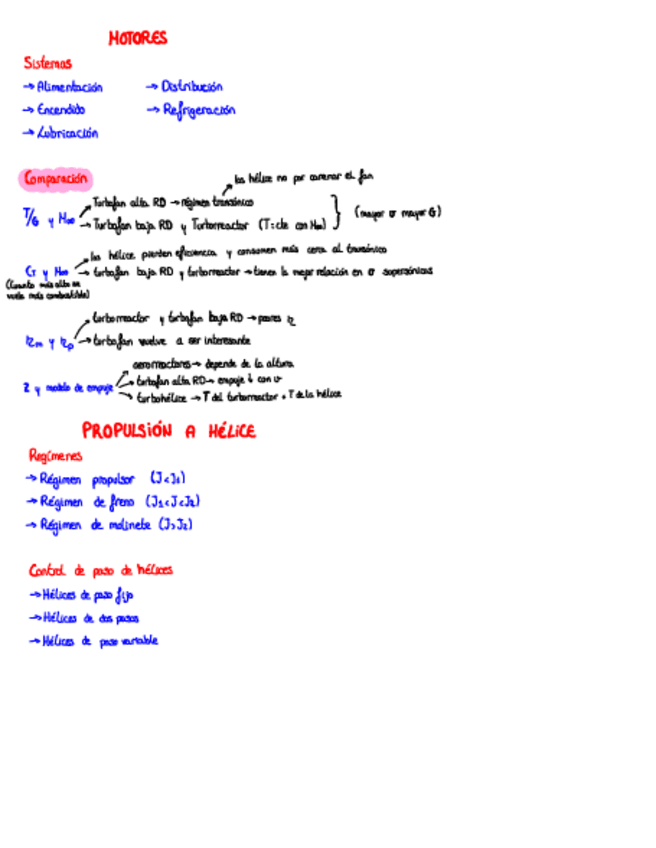 MOTORES
Sistemas
→ Alimentación → Distribución
→ Encendido → Refrigeración
→ Lubricación
Comparación
las hélice no por carenar el fan
T/G y M∞ → Turbofan alta RD → régimen transónico
→ Turbofan baja RD y Turborreactor (T=cte con M∞) } (mayor σ mayor G)
las hélice pierden eficiencia y consumen más cerca al transónico
CT y M∞ → turbofan baja RD y turborreactor → tienen la mejor relación en σ supersónicas
(Cuanto más alto se
vuela más combustible)
turborreactor y turbofan baja RD → peores η
ηm y ηp → turbofan vuelve a ser interesante
aerorreactores → depende de la altura
Z y modelo de empuje → turbofan alta RD → empuje ↓ con v
→ turbohélice → T del turborreactor + T de la hélice
PROPULSIÓN A HÉLICE
Regímenes
→ Régimen propulsor (J<J1)
→ Régimen de freno (J1<J<J2)
→ Régimen de molinete (J>J2)
Control de paso de hélices
→ Hélices de paso fijo
→ Hélices de dos pasos
→ Hélices de paso variable